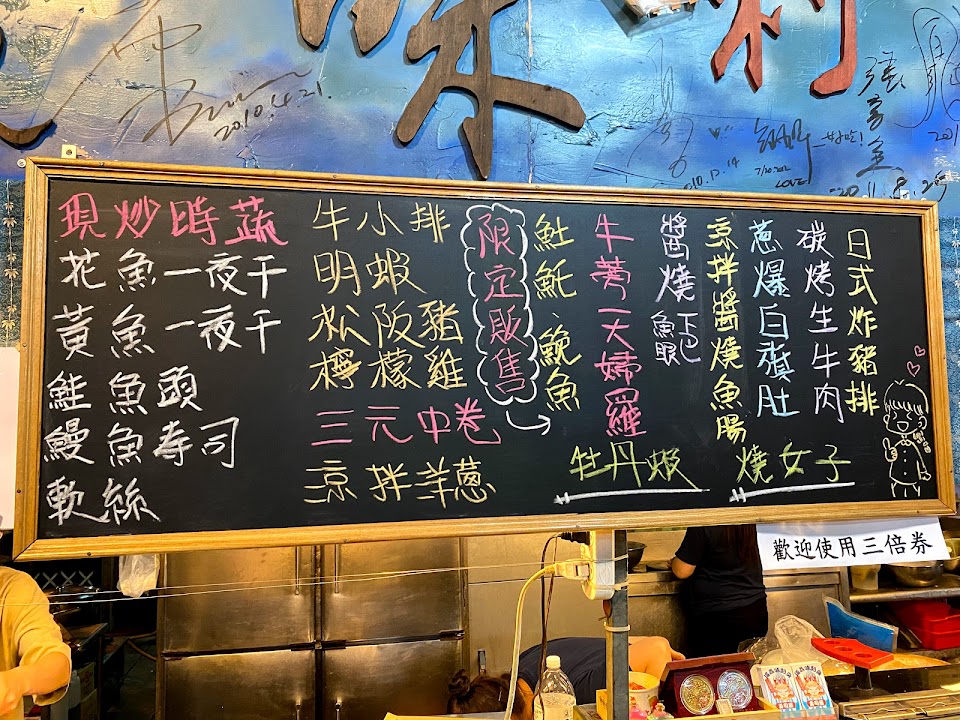 味
2010.4.21.
好吃!
LOVE
現炒時蔬
花魚一夜干
黃魚一夜干
鮭魚頭
鰻魚壽司
軟絲
牛小排
明蝦
松阪豬
檸檬雞
三元中卷
涼拌洋蔥
限定販售
魠魠、鮸魚
牛蒡一大婦羅
醬燒魚下巴
魚眼
涼拌醬燒魚腸
蔥爆白北肚
碳烤生牛肉
日式炸豬排
牡丹蝦
燒女子
歡迎使用三倍券